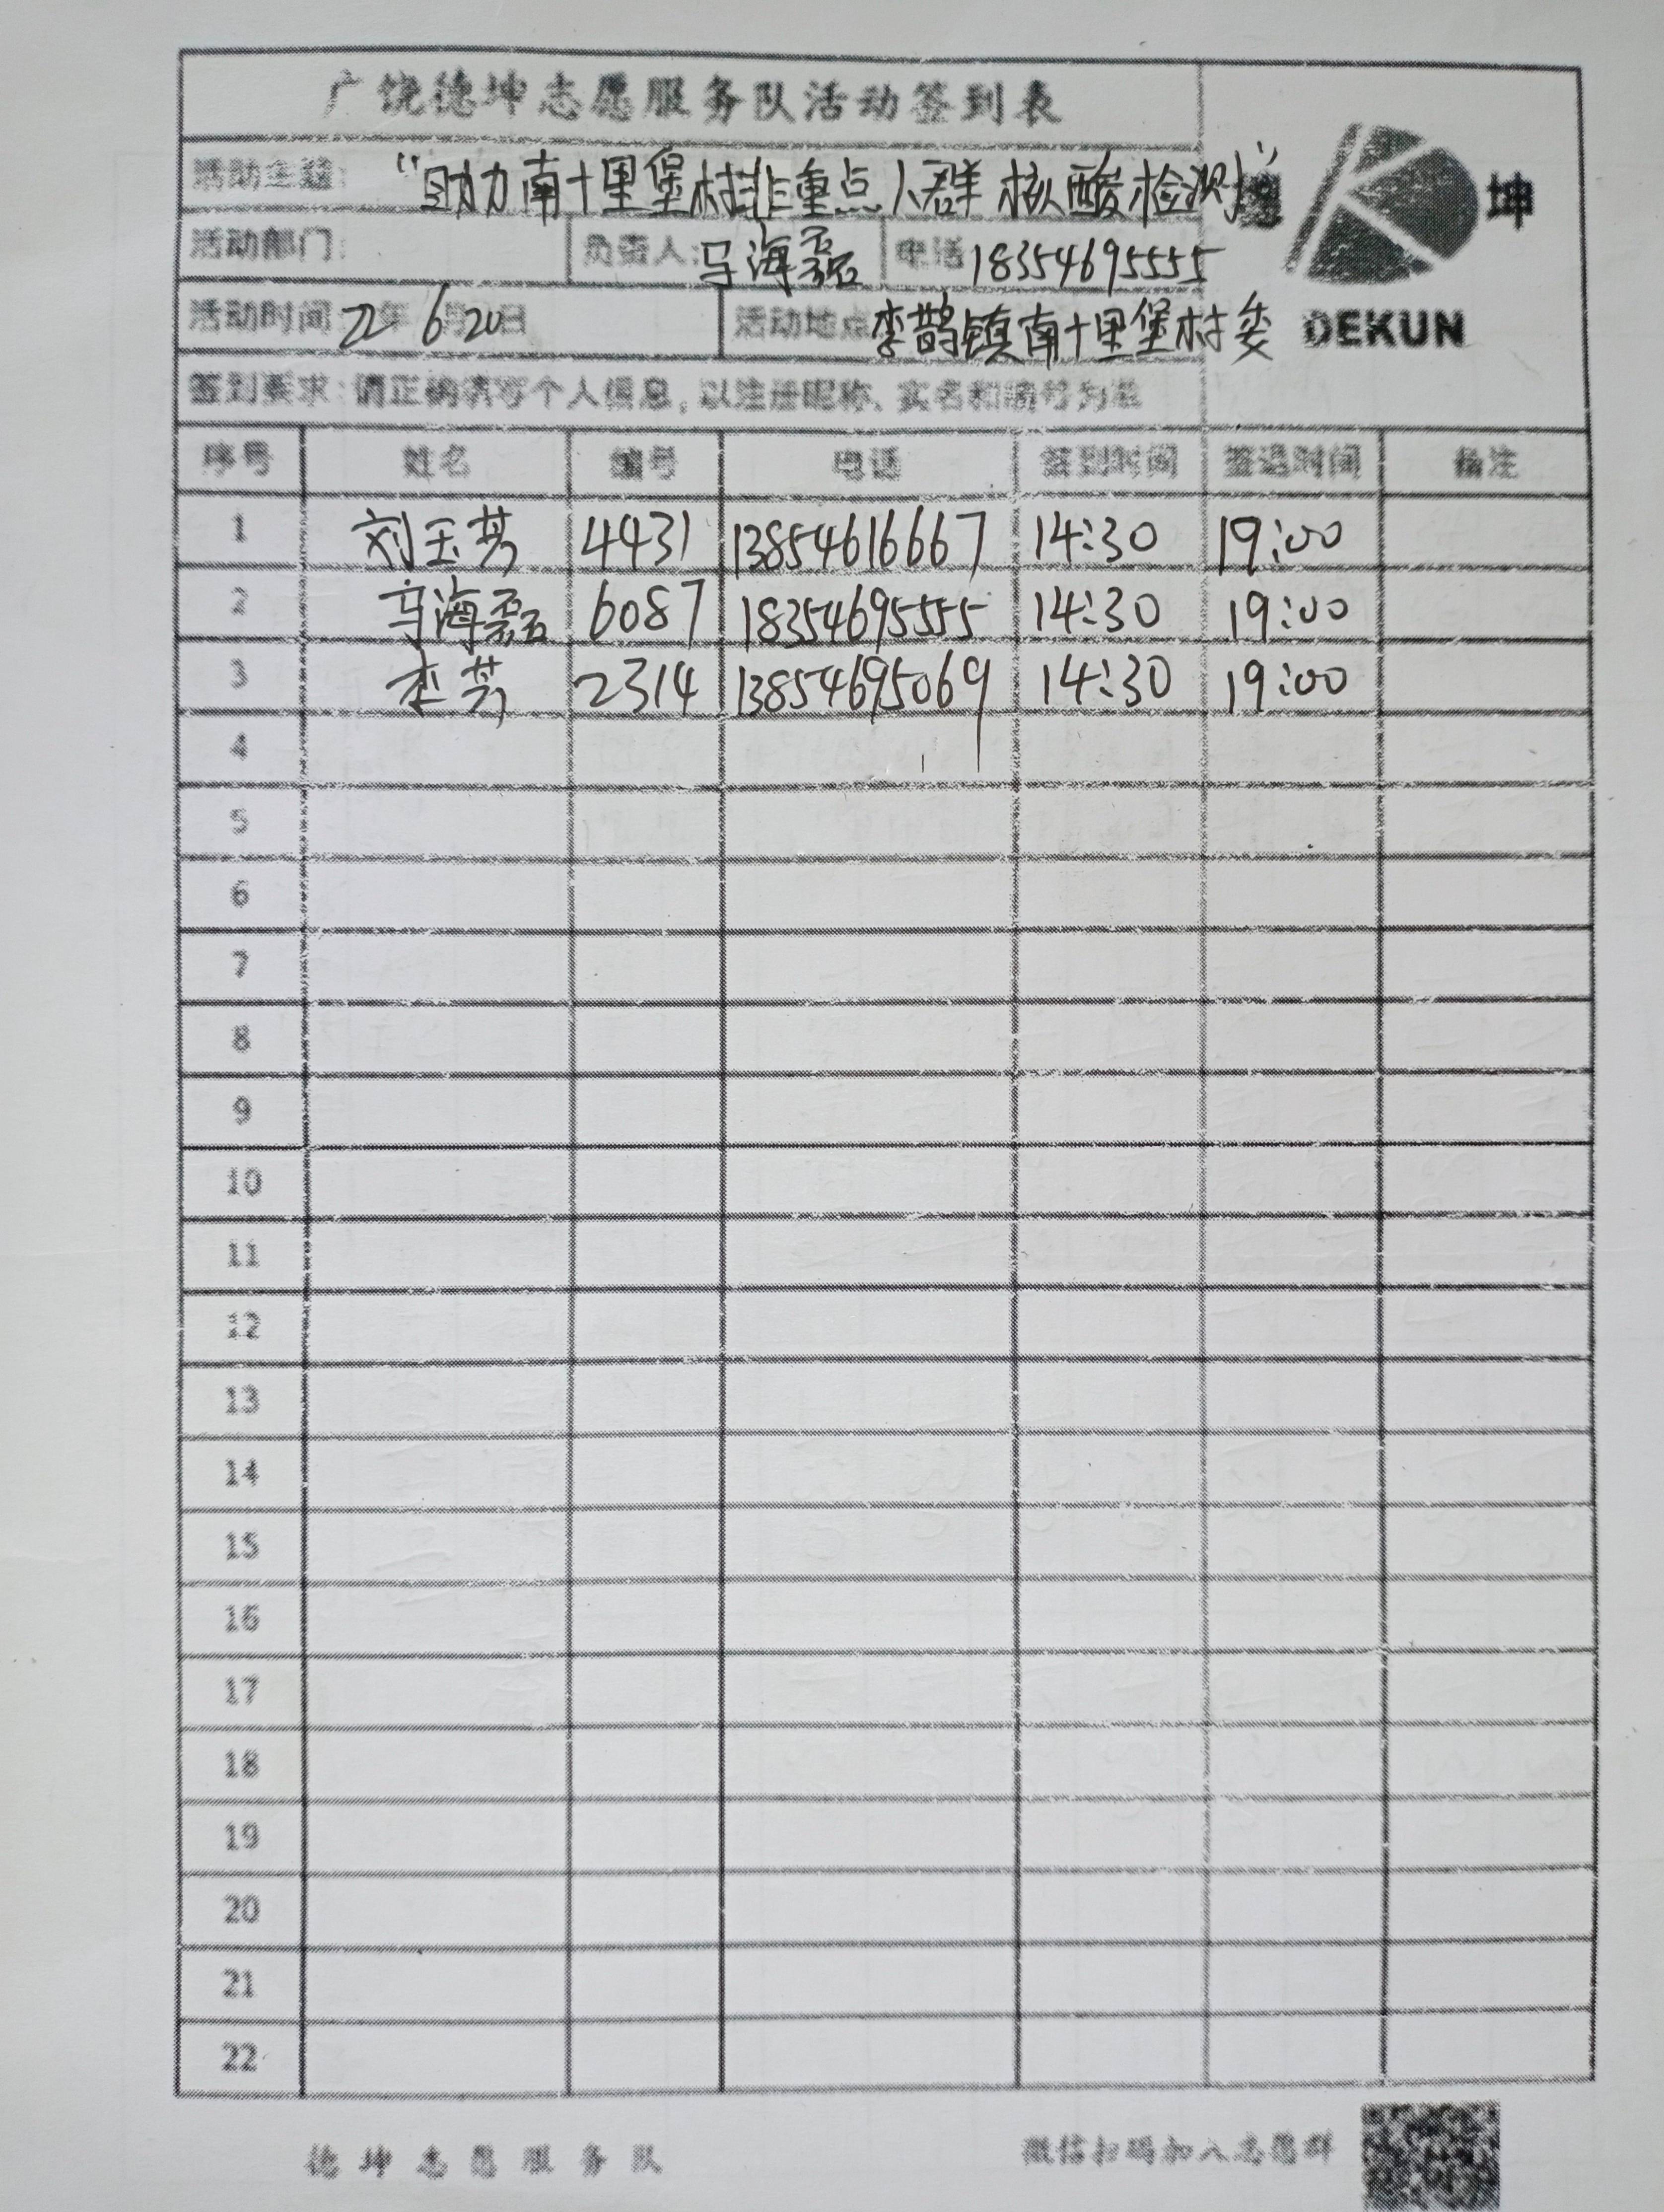 广饶德坤志愿服务队活动签到表
活动主题: "助力南十里堡村非重点人群核酸检测"
德 坤
活动部门: 负责人: 马海磊 电话 18354695555
活动时间 22年 6月20日 活动地点 李鹊镇南十里堡村委
DEKUN
签到要求:请正确填写个人信息,以注册昵称、实名和编号为准
序号 姓名 编号 电话 签到时间 签退时间 备注
1 刘玉芳 4431 13854616667 14:30 19:00
2 马海磊 6087 18354695555 14:30 19:00
3 李芳 2314 13854695069 14:30 19:00
4
5
6
7
8
9
10
11
12
13
14
15
16
17
18
19
20
21
22
德坤志愿服务队 微信扫码加入志愿群